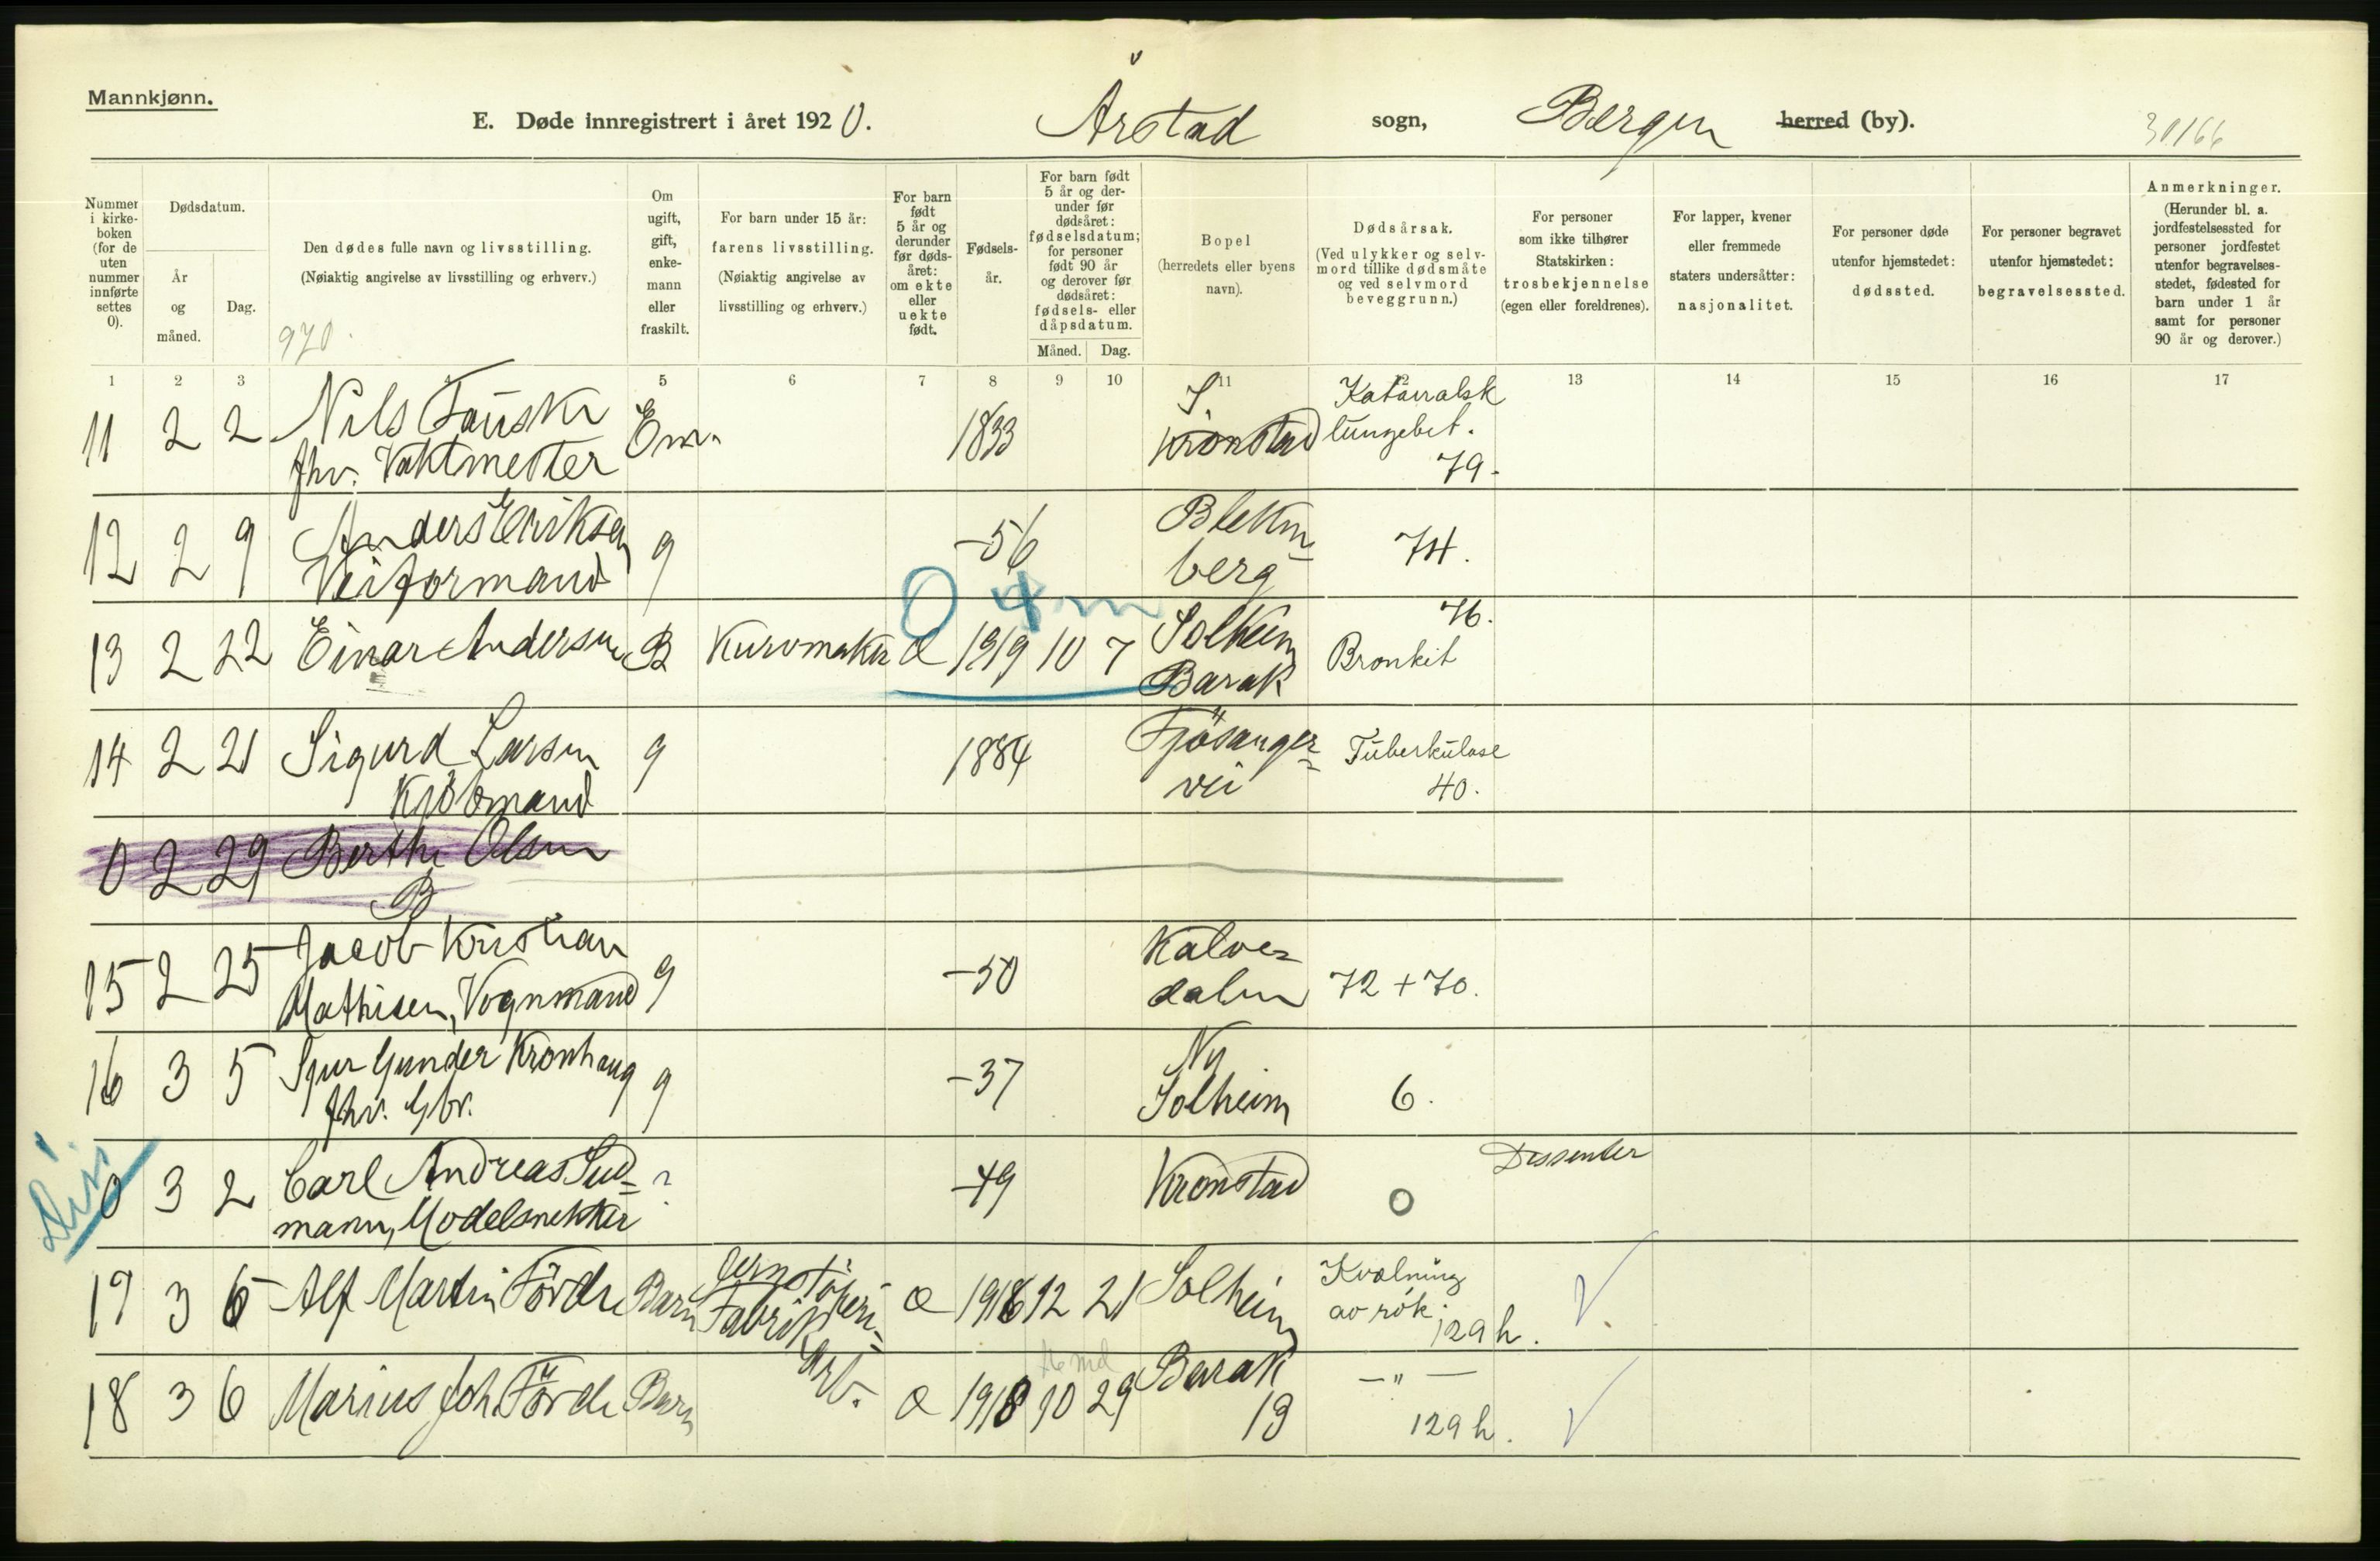 Mannkjønn.
E. Døde innregistrert i året 1920. Årstad sogn, Bergen herred (by). 30166
Nummer i kirke-boken (for de uten nummer innførte settes 0).
Dødsdatum.
År og måned.
Dag.
Den dødes fulle navn og livsstilling.
(Nøiaktig angivelse av livsstilling og erhverv.)
970
Om ugift, gift, enke-mann eller fraskilt.
For barn under 15 år:
farens livsstilling.
(Nøiaktig angivelse av livsstilling og erhverv.)
For barn født 5 år og derunder før døds-året: om ekte eller uekte født.
Fødsels-år.
For barn født 5 år og der-under før dødsåret: fødselsdatum; for personer født 90 år og derover før dødsåret: fødsels- eller dåpsdatum.
Måned. Dag.
Bopel
(herredets eller byens navn).
Dødsårsak.
(Ved ulykker og selv-mord tillike dødsmåte og ved selvmord beveggrunn.)
For personer som ikke tilhører Statskirken: trosbekjennelse (egen eller foreldrenes).
For lapper, kvener eller fremmede staters undersåtter: nasjonalitet.
For personer døde utenfor hjemstedet: dødssted.
For personer begravet utenfor hjemstedet: begravelsessted.
Anmerkninger.
(Herunder bl. a. jordfestelsessted for personer jordfestet utenfor begravelses-stedet, fødested for barn under 1 år samt for personer 90 år og derover.)
1 2 3 4 5 6 7 8 9 10 11 12 13 14 15 16 17
11 2 2 Nils Fauske Em. 1833 S Katarralsk
fhv. Vaktmester Kronstad lungebet.
79.
12 2 9 Anders Eriksen g -56 Bleken= 74.
Veiformand berg
0 4 m
13 2 22 Einar Andersen B Kurvmaker e 1919 10 7 Solheim 76.
Barak Bronkit
14 2 21 Sigurd Larsen g 1884 Fjösanger= Tuberkulose
Kjöbmand vei 40.
0 2 29 Berthe Olsen
B
15 2 25 Jacob Kristian g -50 Kalve= 72 + 70.
Mathisen, Vognmand dalen
16 3 5 Sjur Gunder Kronhaug g -37 Ny 6.
fhv. Gbr. Solheim
Diss
0 3 2 Carl Andreas Sud= ? -49 Kronstad 0 Dissenter
mann, Modelsnekker
17 3 6 Alf Martin Förde Barn Jernstöperi- e 1916 12 21 Solheim Kvælning
Fabrik av rök.
arb. 129 h.
18 3 6 Marius Joh. Förde Barn e 1918 10 29 Barak — " —
13 129 h.